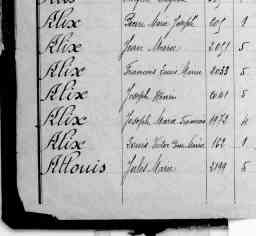 Alix Pierre Marie Joseph 205 9
Alix Jean Marie 5
Alix François Louis Marie 2033 5
Alix Joseph Marie 5
Alix Joseph Marie François 1972 4
Alix Louis Victor Marie 162 9
Allouis Jules Marie 2199 5